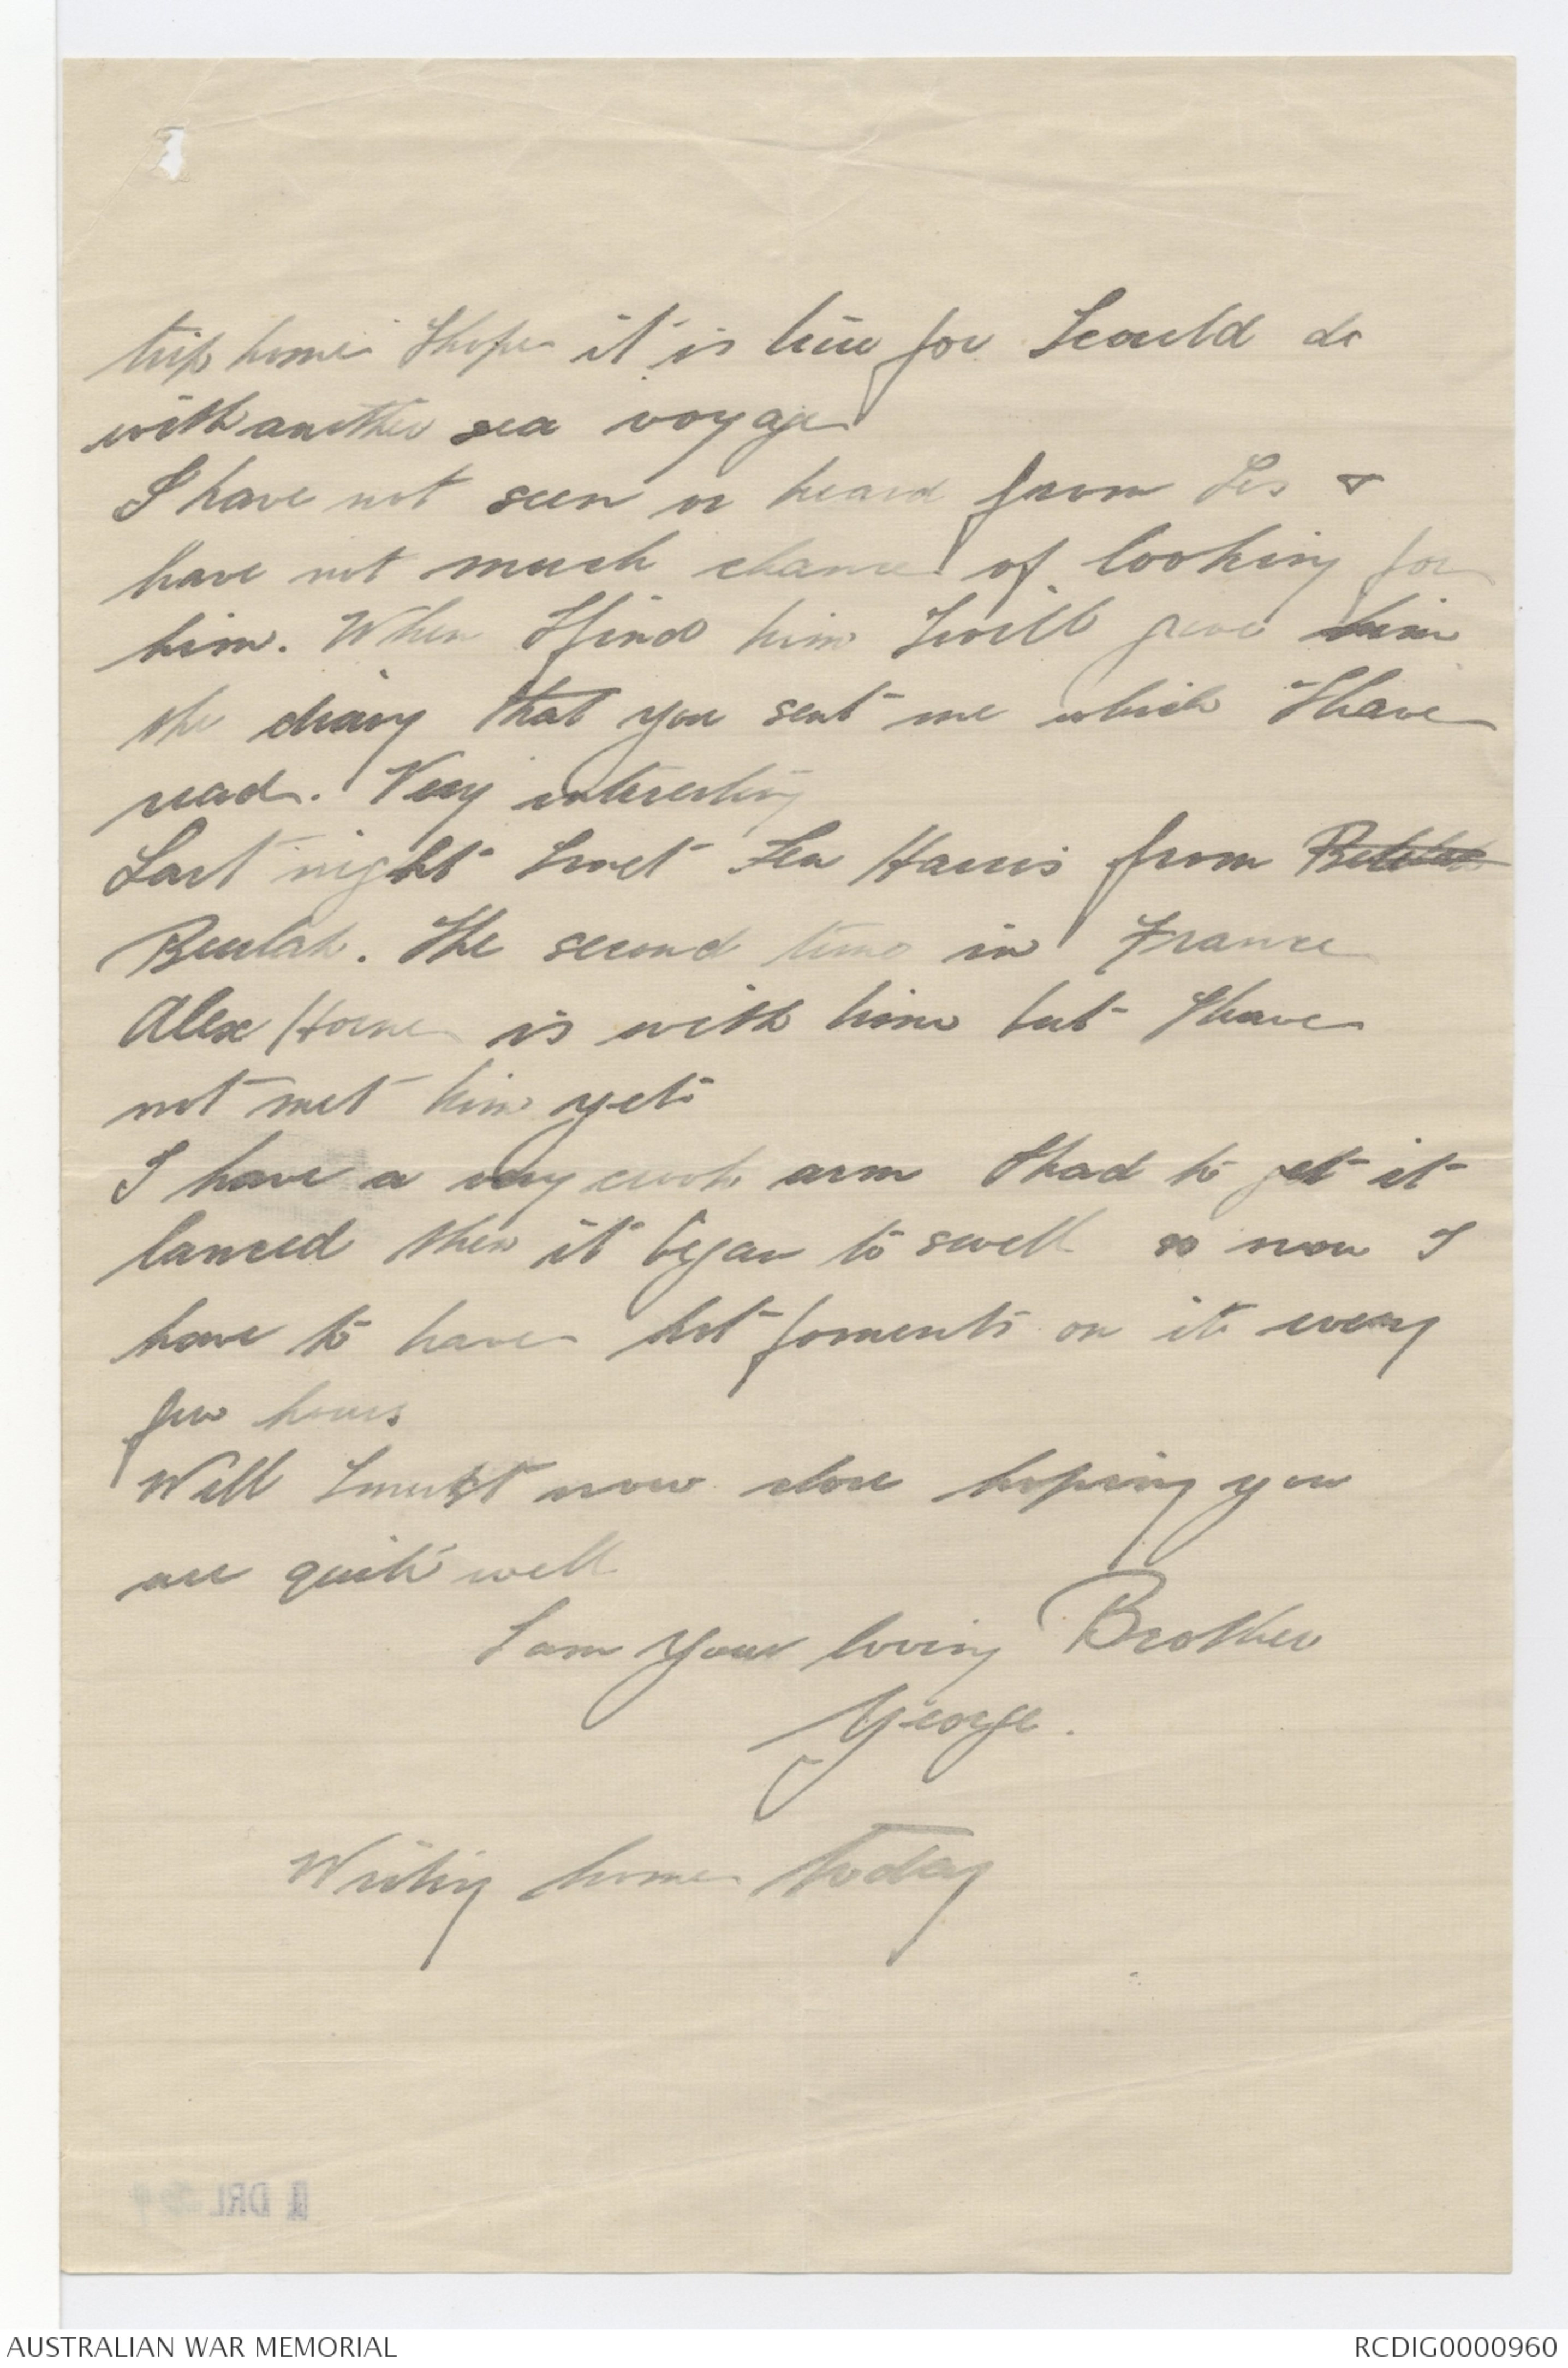 trip home I hope it is true for I could do
with another sea voyage
I have not seen or heard from Les &
have not much chance of looking for
him. When I find him I will give him
the diary that you sent me which I have
read. Very interesting
Last night I met Len Harris from
Beulah. The second time in France
Alex Horne is with him but I have
not met him yet
I have a very crook arm I had to get it
lanced then it began to swell so now I
have to have hot foments on it every
few hours
Well I must now close hoping you
are quite well
I am Your loving Brother
George.
Writing home today
1 DRL
AUSTRALIAN WAR MEMORIAL
RCDIG0000960